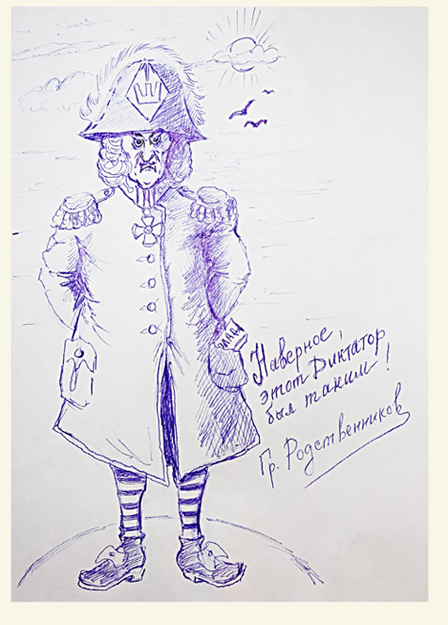 Наверное,
этот Диктатор
был таким!
Гр. Родственников